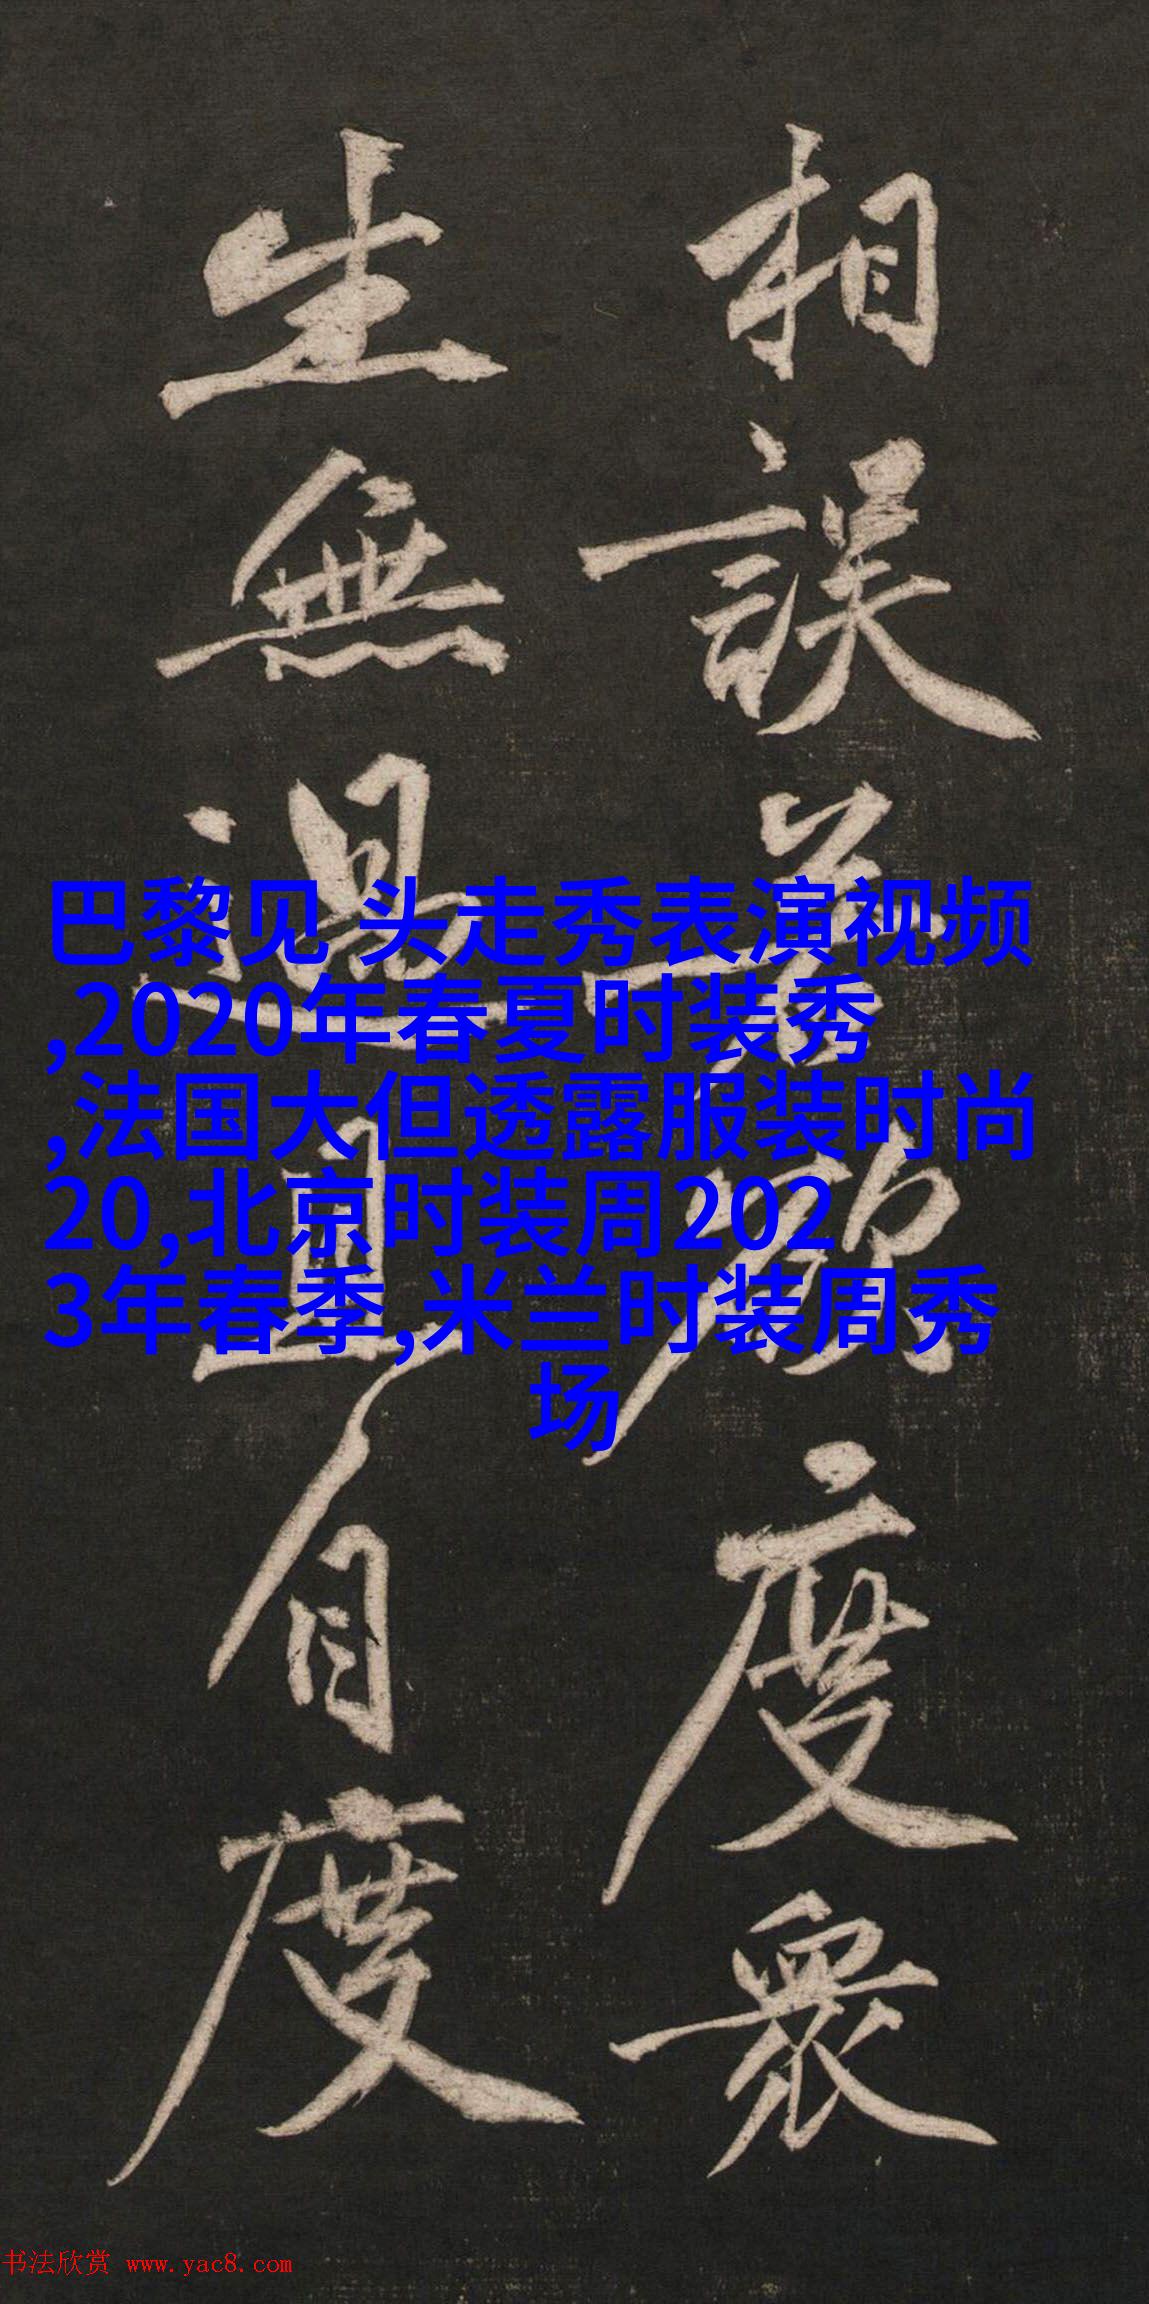 相誤若欲度衆
生無過且自度
巴黎见 头走秀表演视频
,2020年春夏时装秀
,法国大但透露服装时尚
20,北京时装周202
3年春季,米兰时装周秀
场
书法欣赏 www.yac8.com